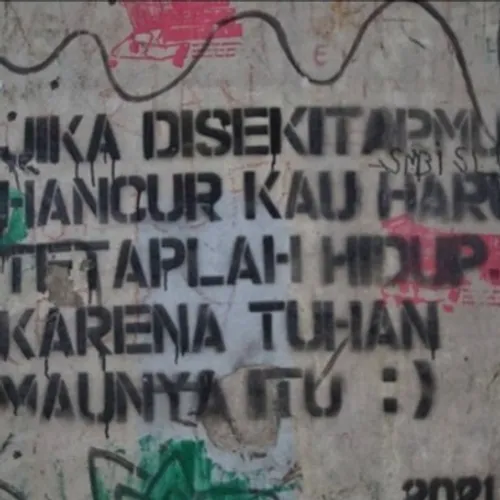 JIKA DISEKITARMU
HANCUR KAU HARU
TETAPLAH HIDUP
KARENA TUHAN
MAUNYA ITU :)